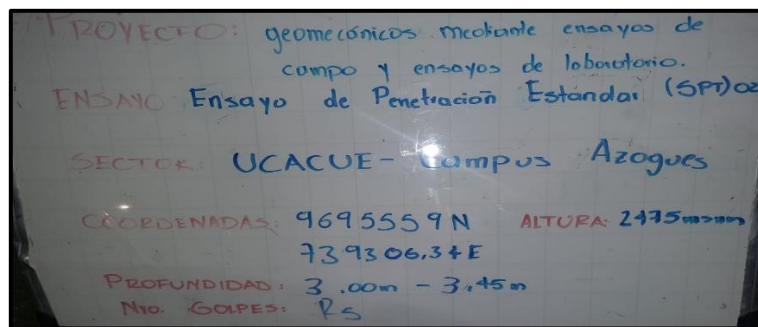 PROYECTO: geomecánicos mediante ensayos de
campo y ensayos de laboratorio.
ENSAYO Ensayo de Penetración Estándar (SPT) 02
SECTOR: UCACUE - Campus Azogues
COORDENADAS: 9695559N ALTURA: 2475msnm
739306,34E
PROFUNDIDAD: 3.00m - 3.45m
Nro. GOLPES: Rs